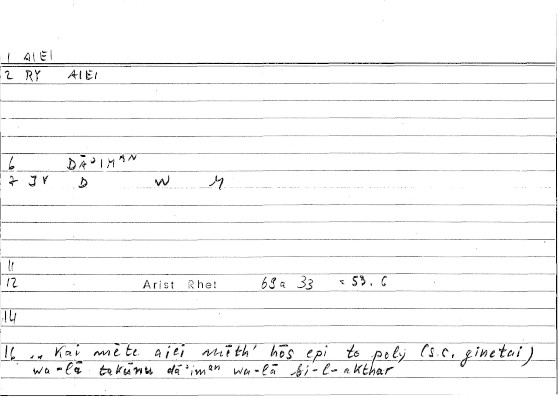 1 AIEI
2 RY AIEI
6 DĀʾIMᴬᴺ
7 JY D W M
11
12 Arist Rhet 69a 33 = 53.6
14
16 .. Kai mēte aiei mēth' hōs epi to poly (s.c. ginetai)
wa-lā takūnu dāʾimᵃⁿ wa-lā fi-l-akthar